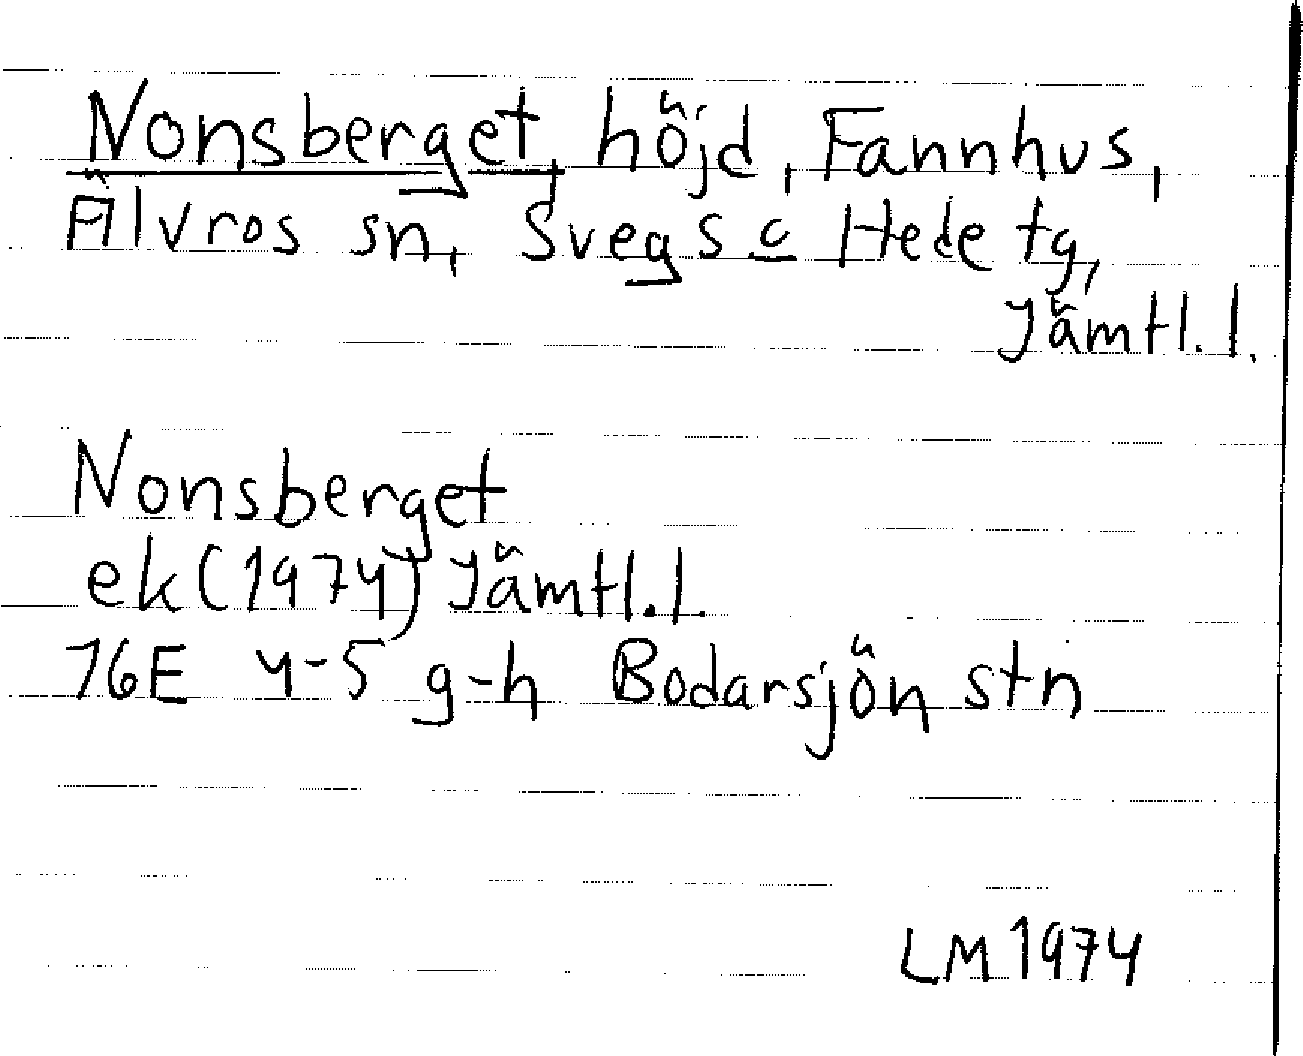 Nonsberget, höjd, Fannhus,
Älvros sn, Svegs o Hede tg,
Jämtl. l.
Nonsberget
ek (1974) Jämtl. l.
16E 4-5 g-h Bodarsjön stn
LM 1974